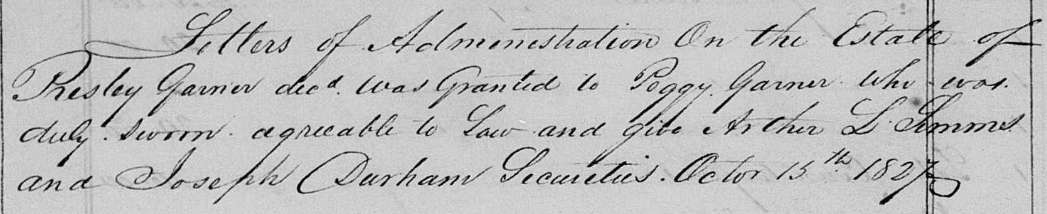 Letters of Admenestration On the Estate of
Presley Garner decd. was Granted to Peggy Garner who was
duly sworn agreeable to Law and give Arther L Simms
and Joseph Durham Secureties. Octor 15th 1827